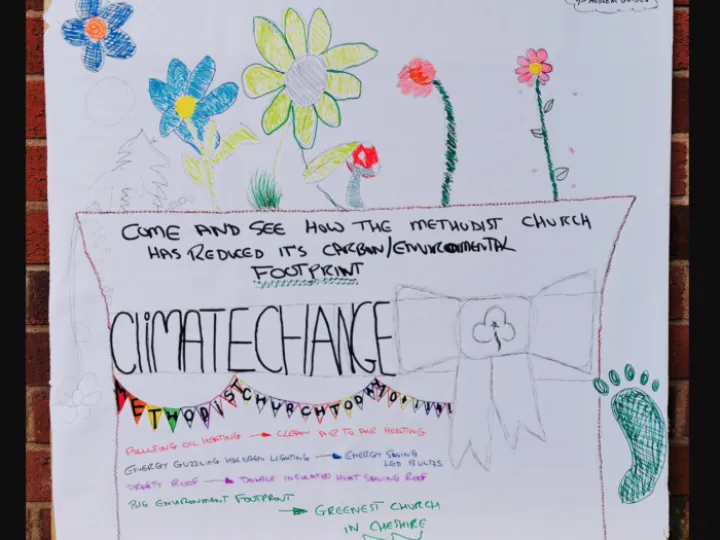 COME AND SEE HOW THE METHODIST CHURCH
HAS REDUCED IT'S CARBON/ENVIROMENTAL
FOOTPRINT
CLiMATE CHANGE
METHODIST CHURCH TODAY
POLLUTING OIL HEATING → CLEAN AIR TO AIR HEATING
ENERGY GUZZLING HALOGEN LIGHTING → ENERGY SAVING
LED BULBS
DRAFTY ROOF → DOUBLE INSULATED HEAT SAVING ROOF
BIG ENVIRONMENT FOOTPRINT
→ GREENEST CHURCH
IN CHESHIRE